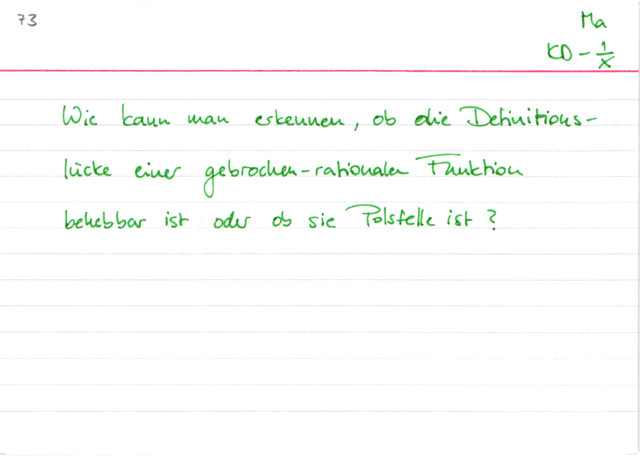 73
Ma
KD - 1/x
Wie kann man erkennen, ob die Definitions-
lücke einer gebrochen-rationalen Funktion
behebbar ist oder ob sie Polstelle ist?